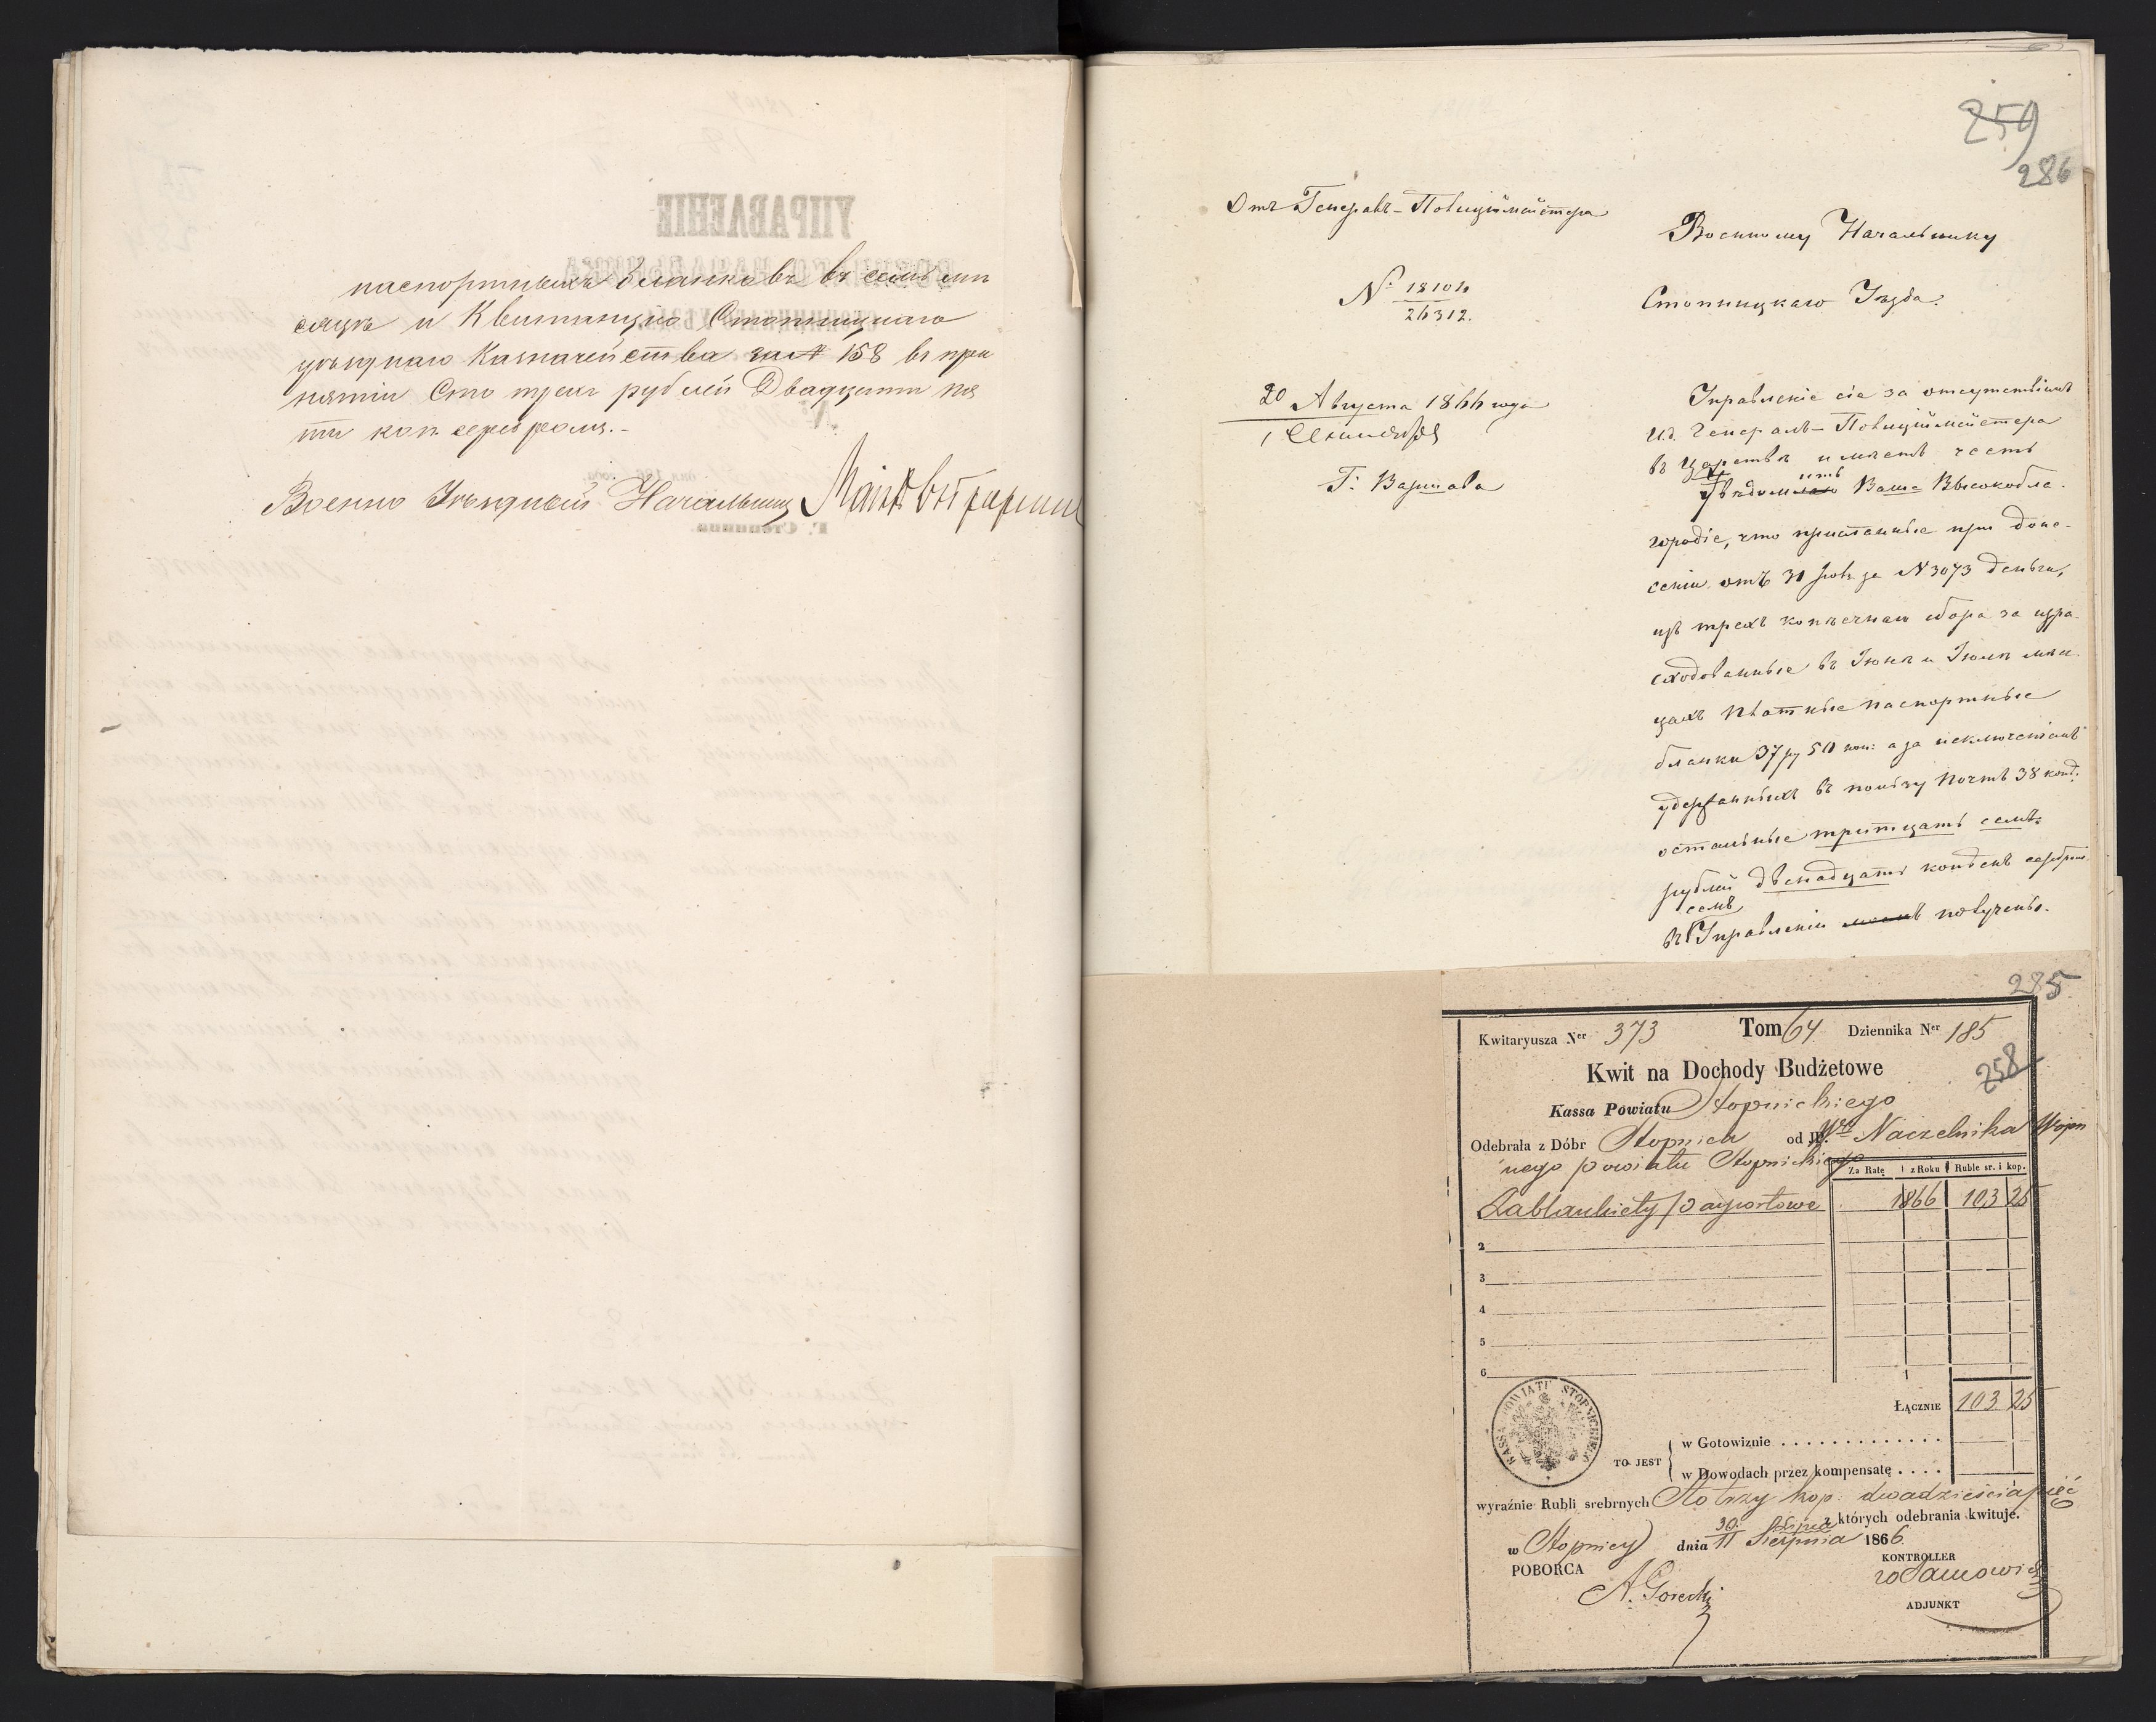 паспортныхъ бланковъ въ семъ мѣ
сяцѣ и Квитанцію Стопницкаго
уѣзднаго Казначейства за № 158 въ при
нятіи Сто трехъ рублей Двадцати пя
ти коп. серебромъ.-
Военно Уѣздный Начальникъ Маіоръ
УПРАВЛЕНІЕ
ВОЕННАГО НАЧАЛЬНИКА
Г. Стопница.
259
286
Отъ Генералъ-Полицiймейстера
№ 18104
26312.
20 Августа 1866 года
1 Сентября
Г. Варшава
Военному Начальнику
Стопницкаго Уѣзда.
Управленіе сіе за отсутствіемъ
И.д. Генералъ-Полицiймейстера
въ Царствѣ имѣетъ честь
ить
увѣдомляю Ваше Высокобла-
городіе, что присланные при доне-
сеніи отъ 31 Іюля за № 3073 деньги,
изъ трехъ копѣечнаго сбора за изра-
сходованные въ Іюнѣ и Іюлѣ мѣся-
цахъ платные паспортные
бланки 37 ру 50 коп: а за исключеніемъ
удержанныхъ въ пользу почтъ 38 коп:
остальные тритцать семь
рублей двенадцать копѣекъ серебромъ
семъ
въ Управленіи моемъ получены.
285
Kwitaryusza Ner 373 Tom 64. Dziennika Ner 185
258
Kwit na Dochody Budżetowe
Kassa Powiatu Stopnickiego
Odebrała z Dóbr Stopnica od Wgo Naczelnika Wojen
nego powiatu Stopnickiego
Za Ratę z Roku Ruble sr. i kop.
Za blankiety paszportowe 1866 103 25
2
3
4
5
6
ŁĄCZNIE 103 25
KASSA POWIATU STOPNICKIEGO
TO JEST
w Gotowiznie . . . . . . . . . . . . . .
w Dowodach przez kompensatę . . . .
wyraźnie Rubli srebrnych Sto trzy kop. dwadzieścia pięć
z których odebrania kwituje.
w Stopnicy dnia 30. Lipca / 11 Sierpnia 1866
POBORCA
KONTROLLER
A. Gorecki
ADJUNKT